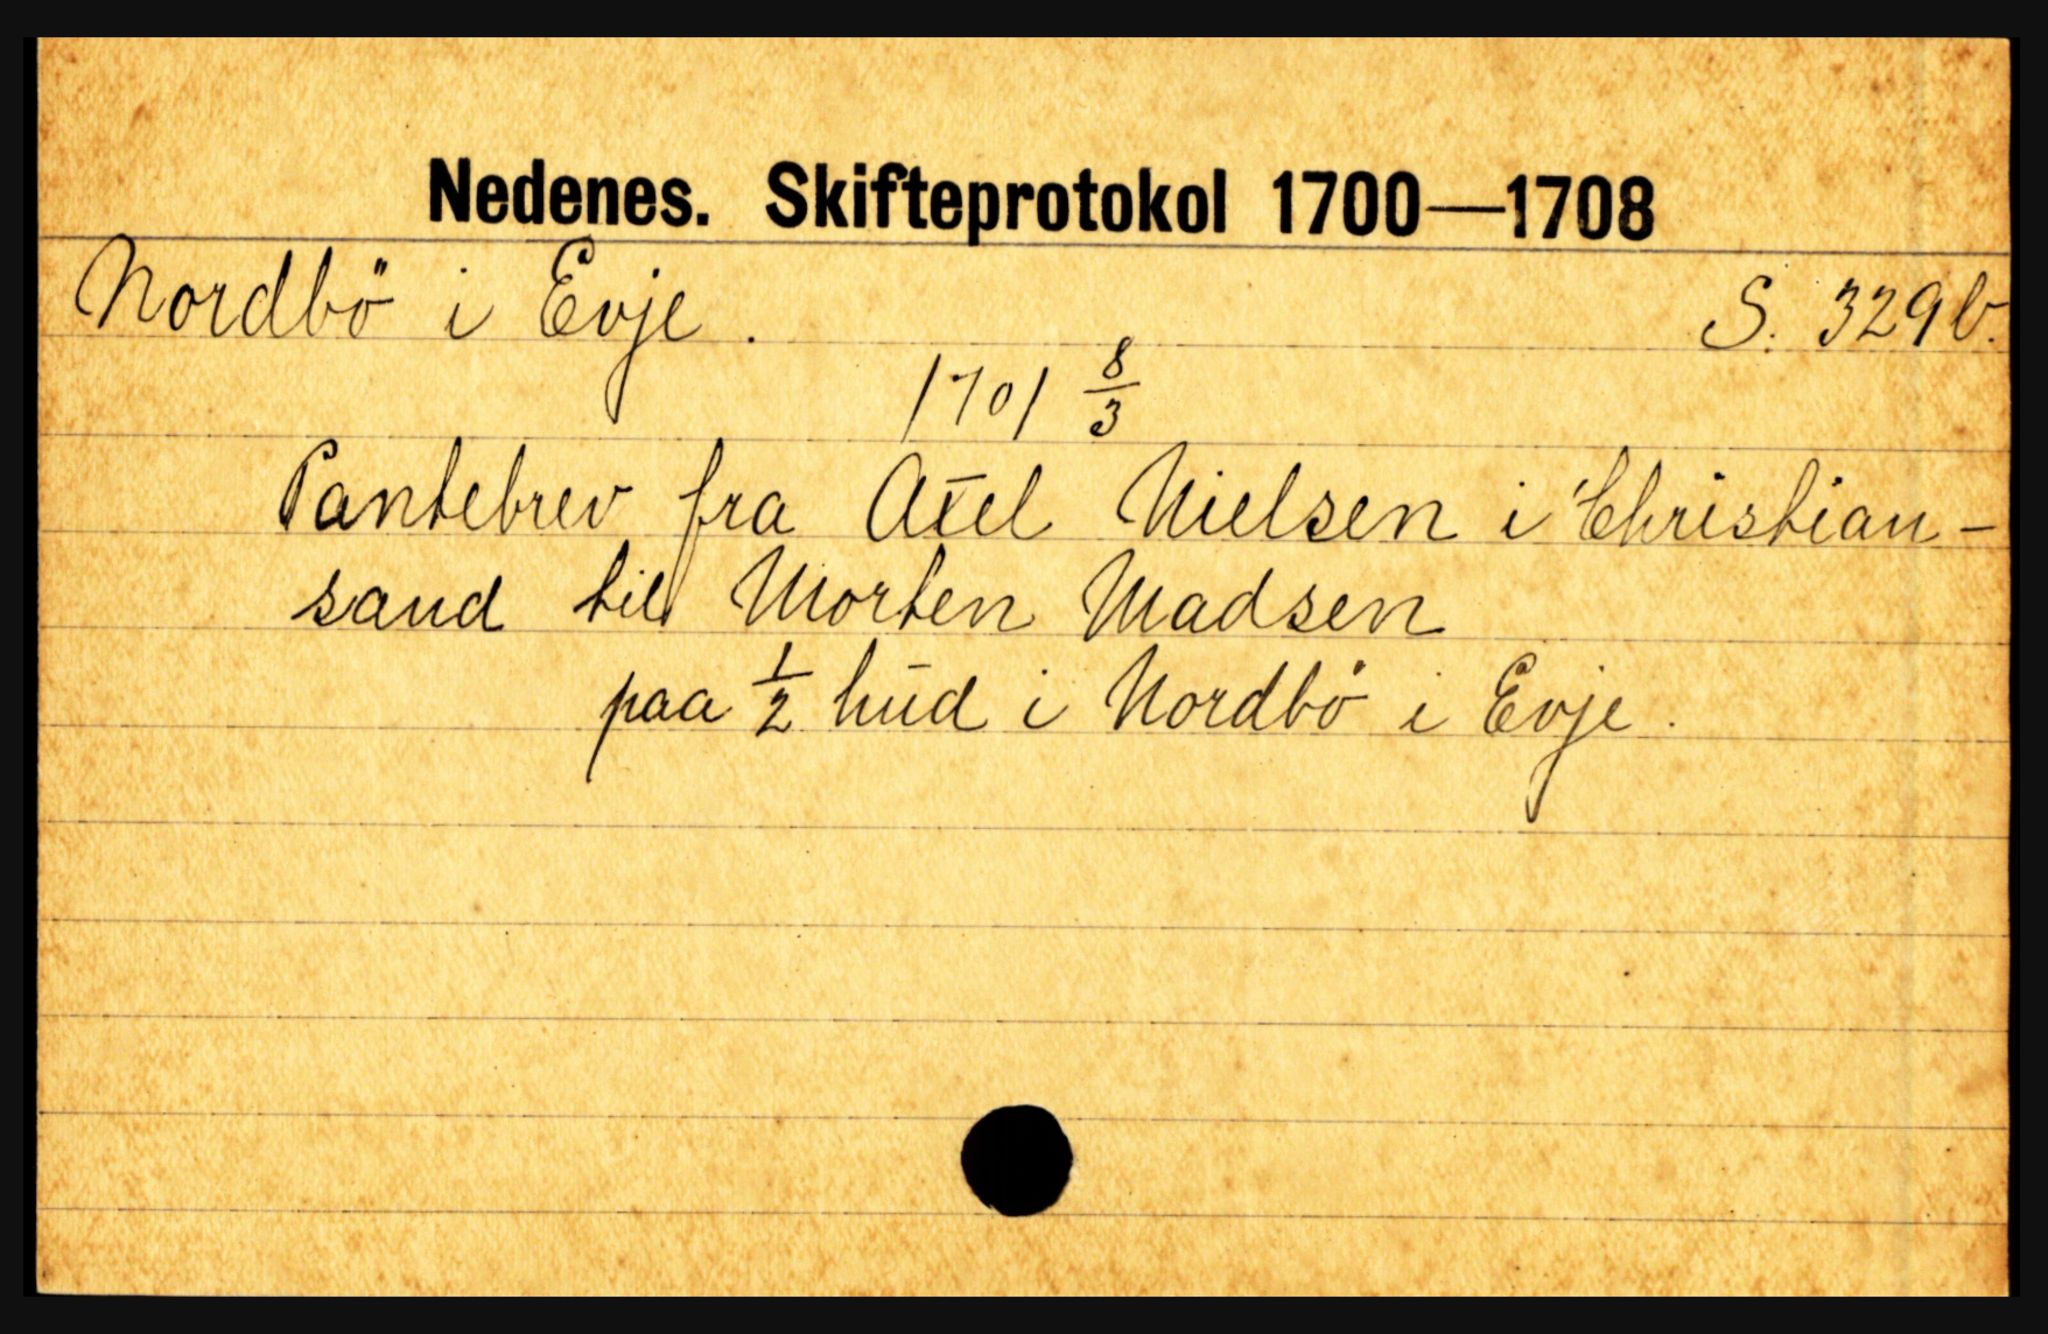 Nedenes. Skifteprotokol 1700—1708
Nordbö i Evje. S. 329b.
1701 8/3
Pantebrev fra Axel Nielsen i Christian-
sand til Morten Madsen
paa 1/2 hud i Nordbö i Evje.